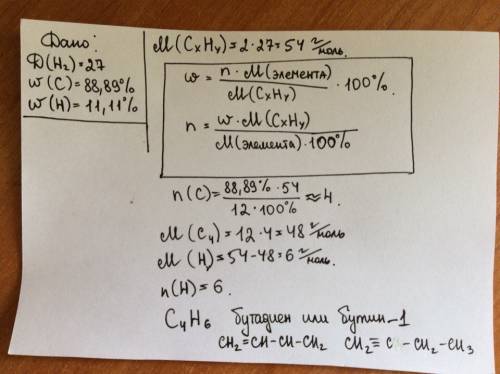 Дано:
D(H₂)=27
w(C)=88,89%
w(H)=11,11%
M(CxHy)=2·27=54 г/моль.
w = n·M(элемента)/M(CxHy) · 100%.
n = w·M(CxHy)/M(элемента)·100%
n(C)=88,89%·54/12·100% ≈4.
M(C₄)=12·4=48 г/моль
M(H)=54-48=6 г/моль.
n(H)=6.
C₄H₆ бутадиен или бутин-1
CH₂=CH-CH-CH₂ CH₂≡C-CH₂-CH₃